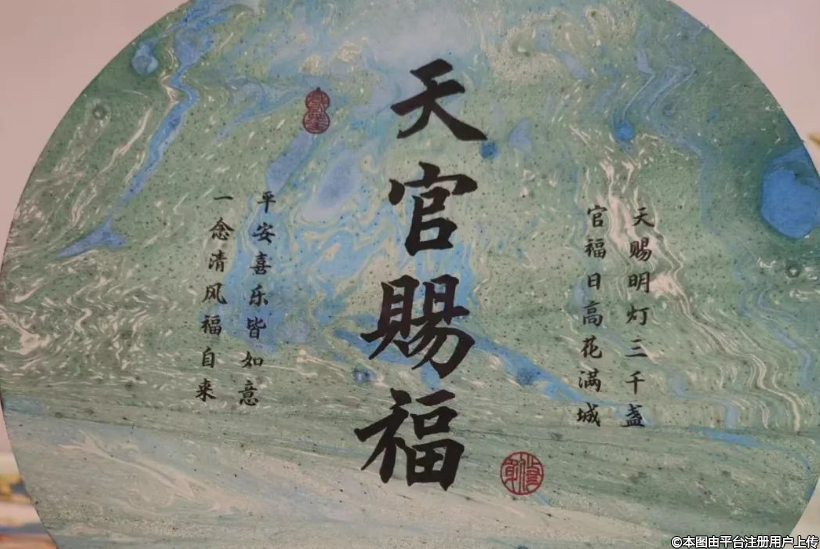 天赐明灯三千盏
官福日高花满城
天官賜福
平安喜乐皆如意
一念清风福自来
©本图由平台注册用户上传